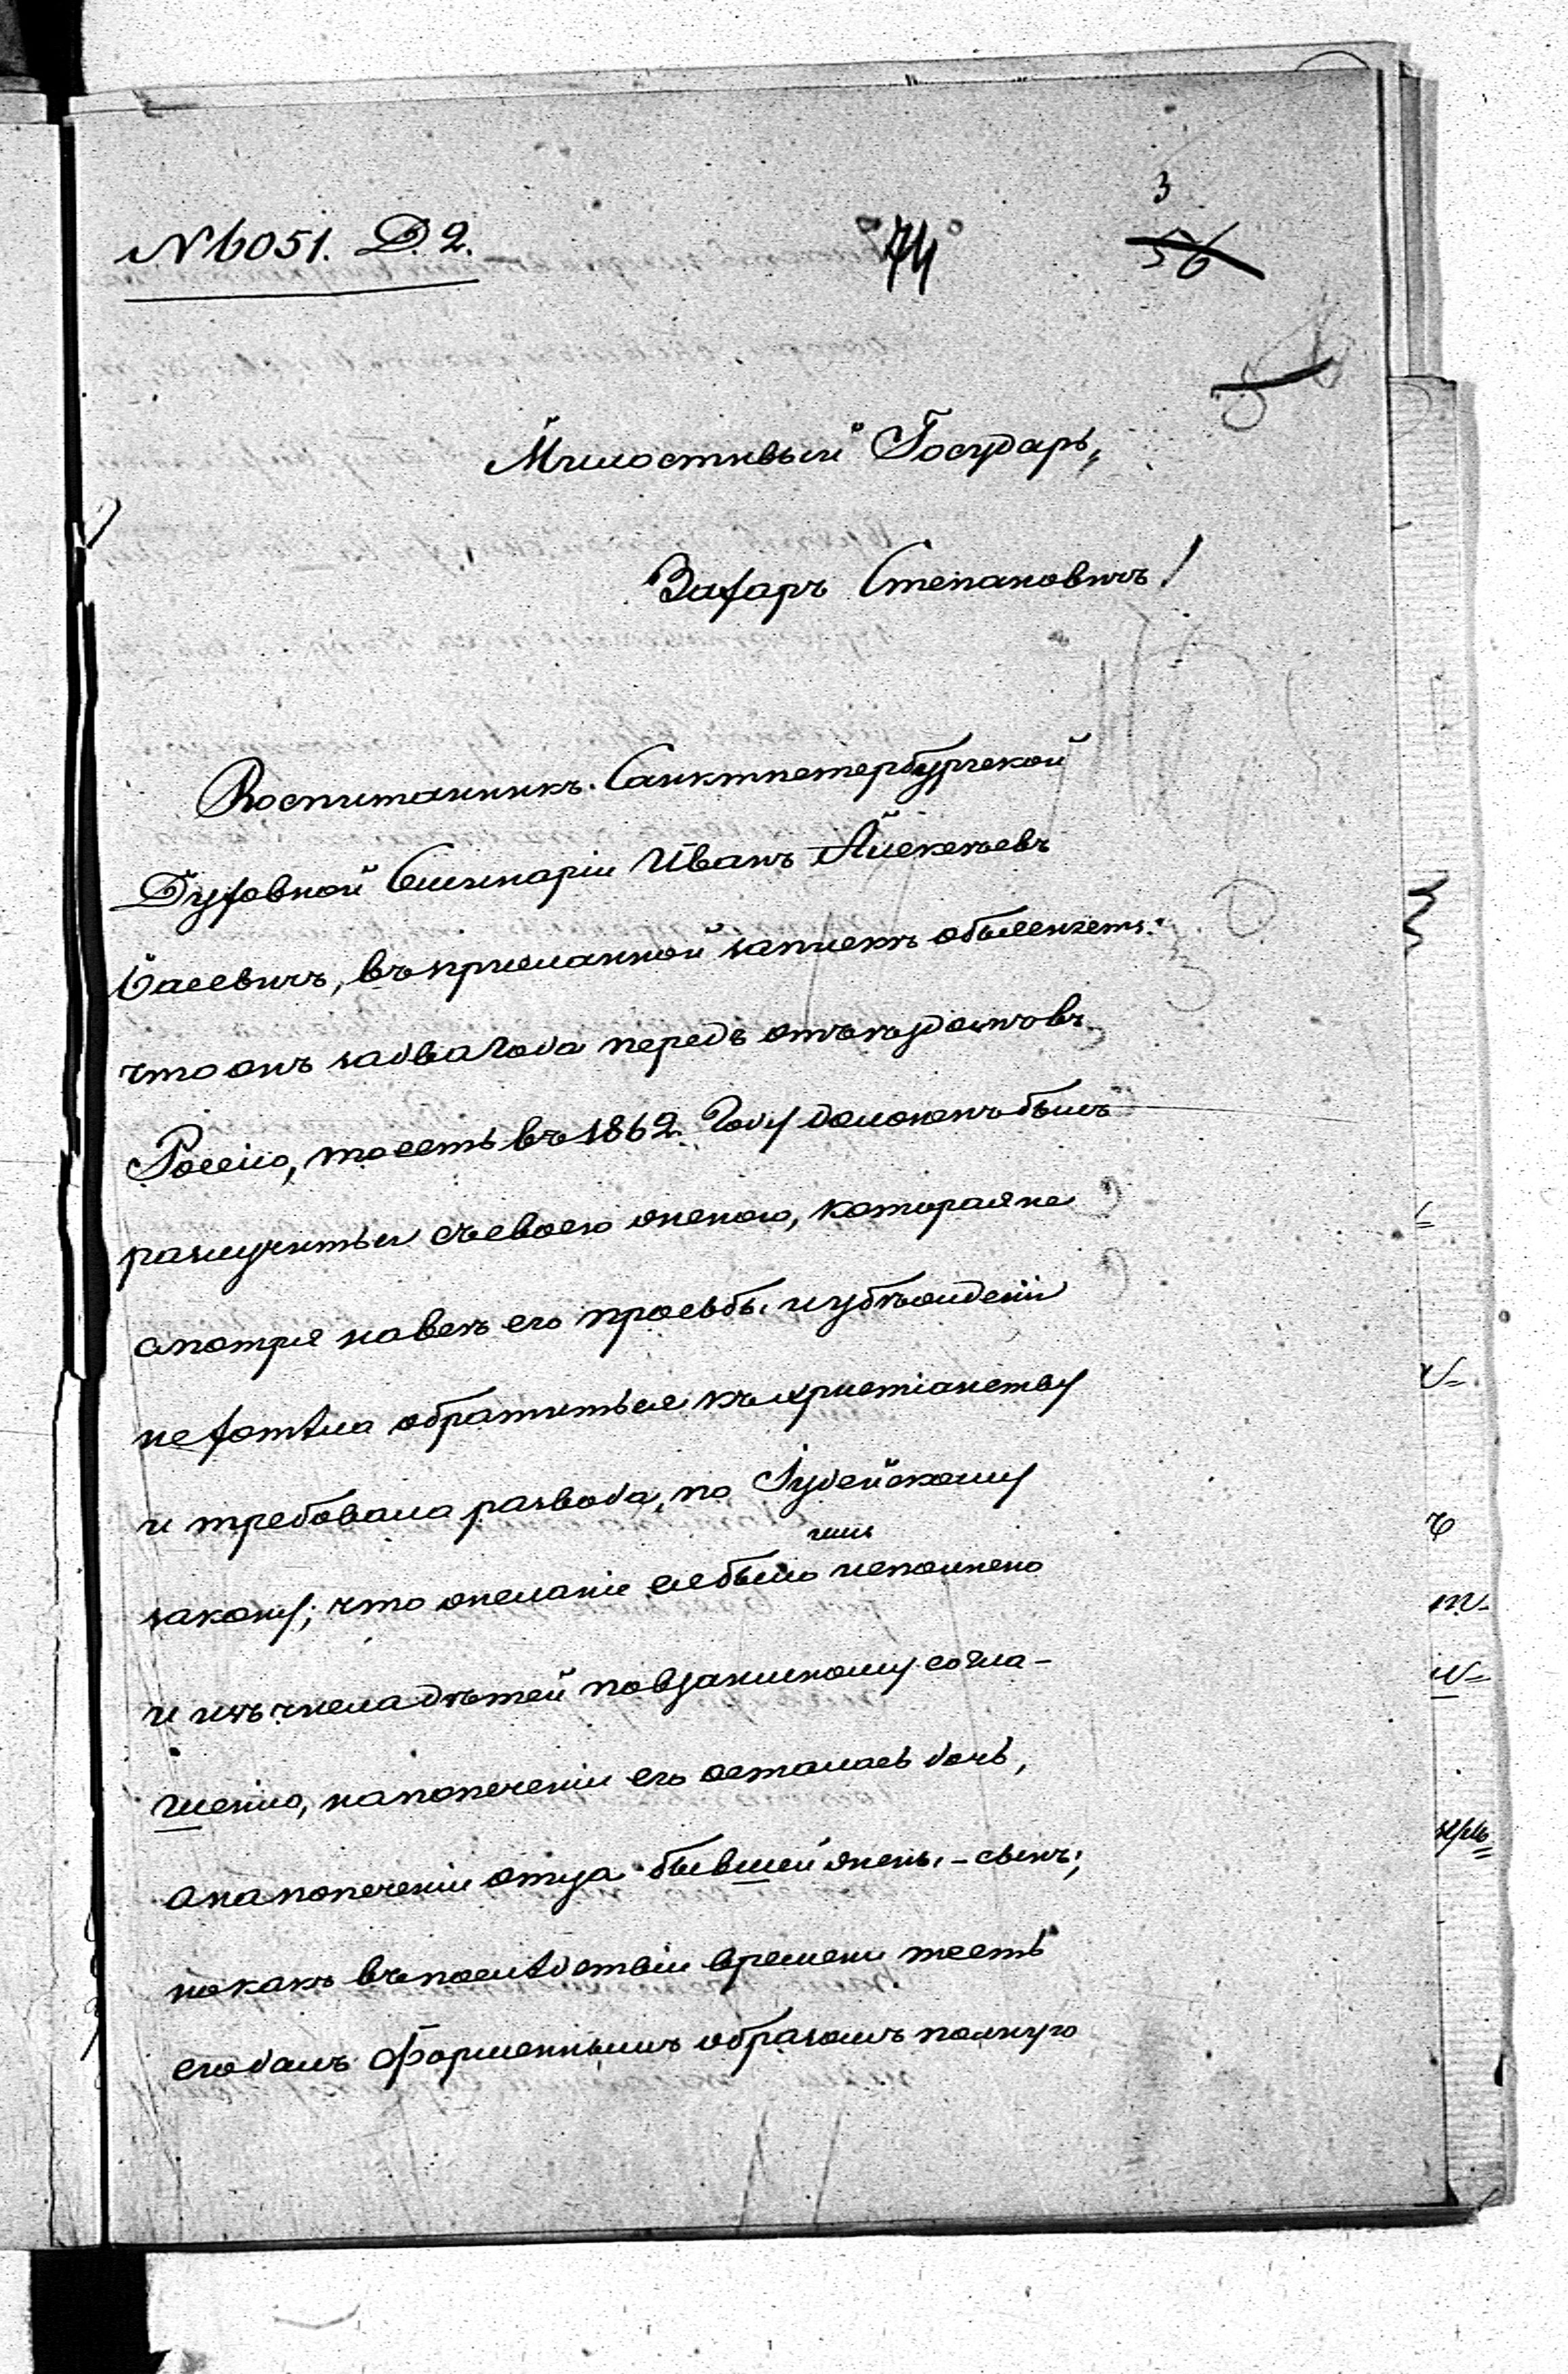 N 6051. Д. 2.
74
3
56
Милостивый Государь,
Захаръ Степановичъ!
Воспитанникъ Санктпетербургской
Духовной Семинаріи Иванъ Алексѣевъ
въ присланной запискѣ объясняетъ:
что онъ за два года передъ отъѣздомъ въ
Россію, то есть въ 1862. году долженъ былъ
разлучиться съ своею женою, которая не
смотря на все его просьбы и убѣжденіи
не хотѣла обратиться къ христіанству
и требовала развода, по Іудейскому
закону; что желаніе ея было имъ исполнено
и изъ числа дѣтей по взаимному согла-
шенію, на попеченіи его осталась дочь,
а на попеченіи отца бывшей жены - сынъ;
но какъ въ послѣдствіи времени тесть
его далъ форменнымъ образомъ полную